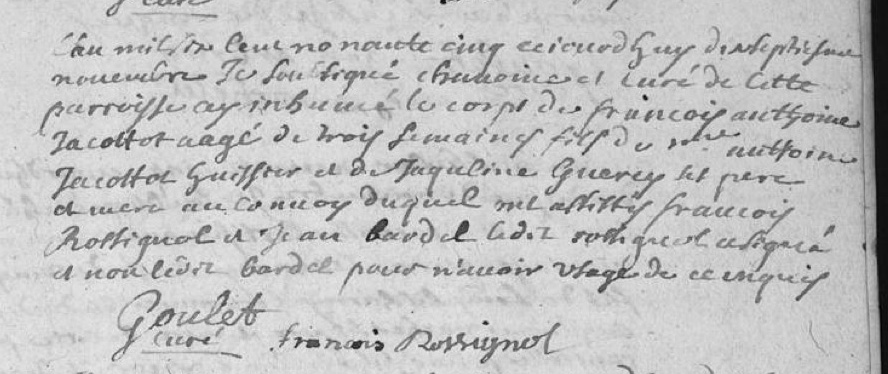 curé
L'an mil six cent nonante cinq ce jourdhuy dixseptiesme
novembre Je soubsigné chanoine et curé de cette
parroisse ay inhumé le corps de francois anthoine
Jacottot aagé de trois semaines fils de mre anthoine
Jacottot huissier et de Jaquline Guerey ses pere
et mere au convoy duquel ont assistés francois
Rossignol et Jean bardel ledit rossignol a signé
et non ledit bardel pour n'avoir usage de ce enquis
Goulet
curé francois Rossignol